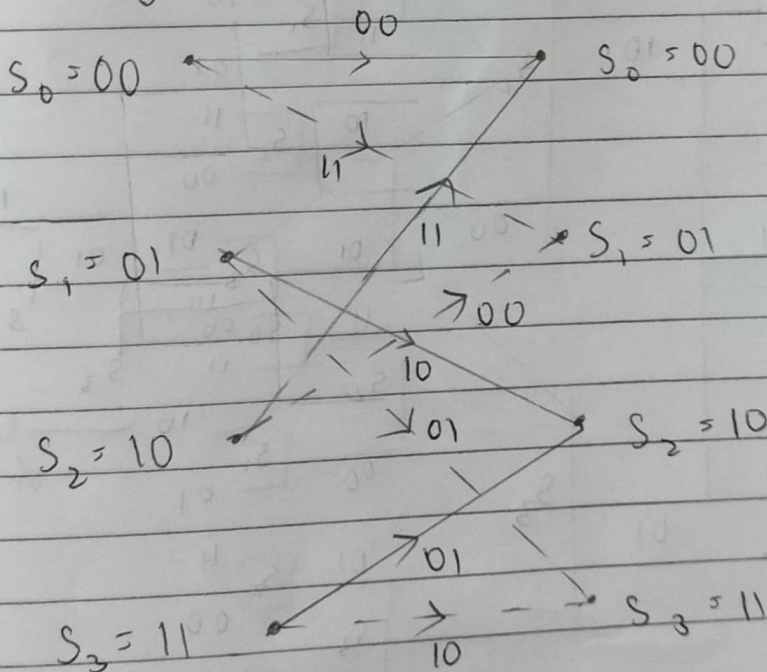 00
S₀ = 00
S₀ = 00
11
11
S₁ = 01
S₁ = 01
00
10
01
S₂ = 10
S₂ = 10
01
S₃ = 11
S₃ = 11
10